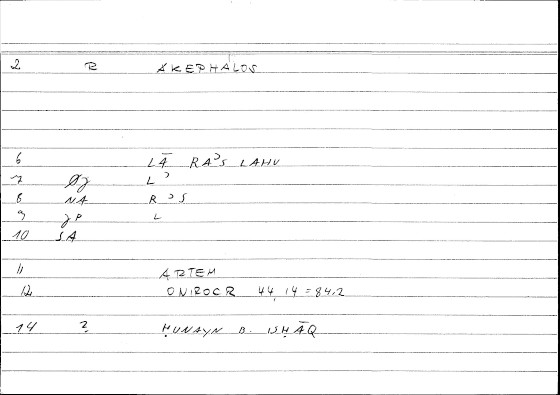 2 R AKEPHALOS
6 LĀ RAʾS LAHU
7 Øj Lʾ
8 NA RʾS
9 jP L
10 SA
11 ARTEM
12 ONIROCR 44,14 = 84,2
14 2 ḤUNAYN B. ISḤĀQ